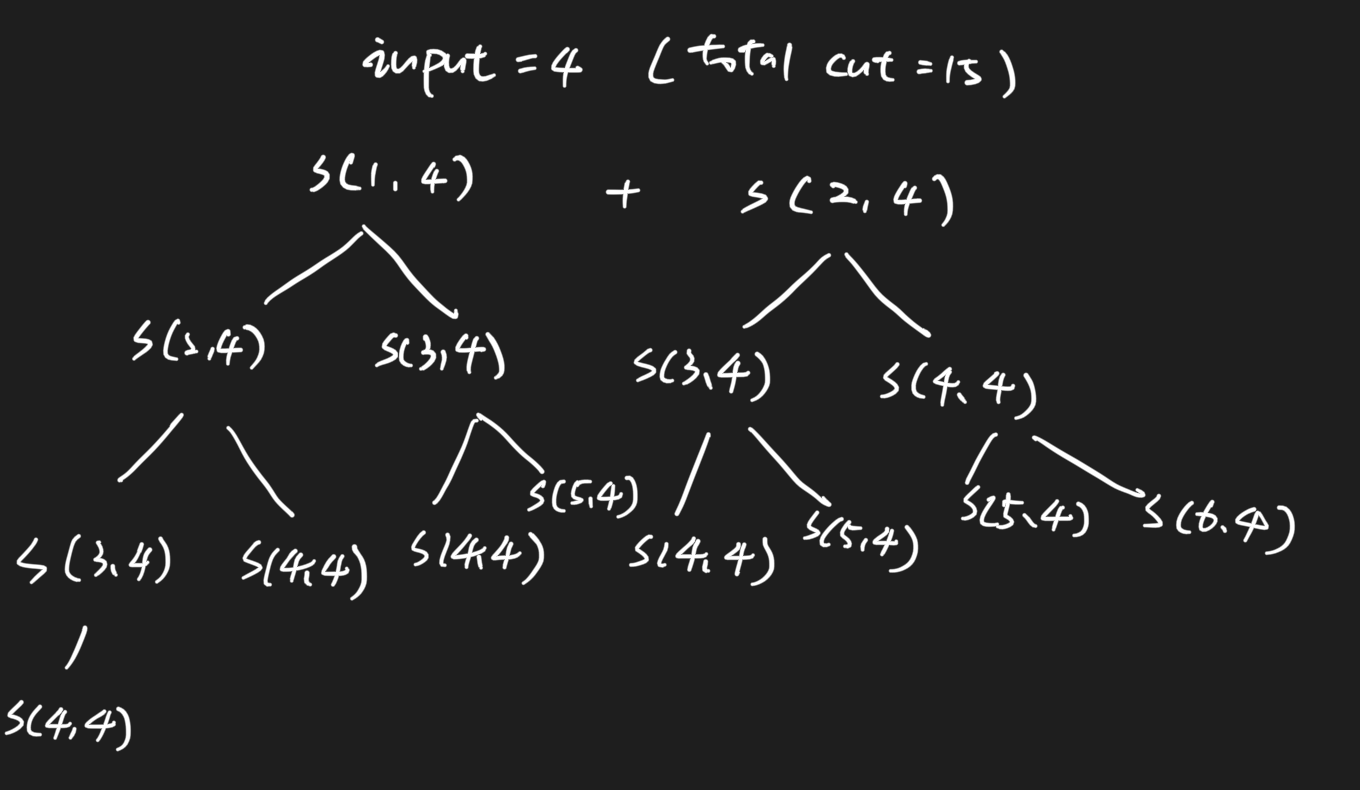 input = 4 (total cut = 15)
S(1, 4) + S(2, 4)
S(2,4) S(3,4) S(3,4) S(4, 4)
S(5,4) S(5,4) S(5,4) S(6,4)
S(3,4) S(4,4) S(4,4) S(4,4)
S(4,4)